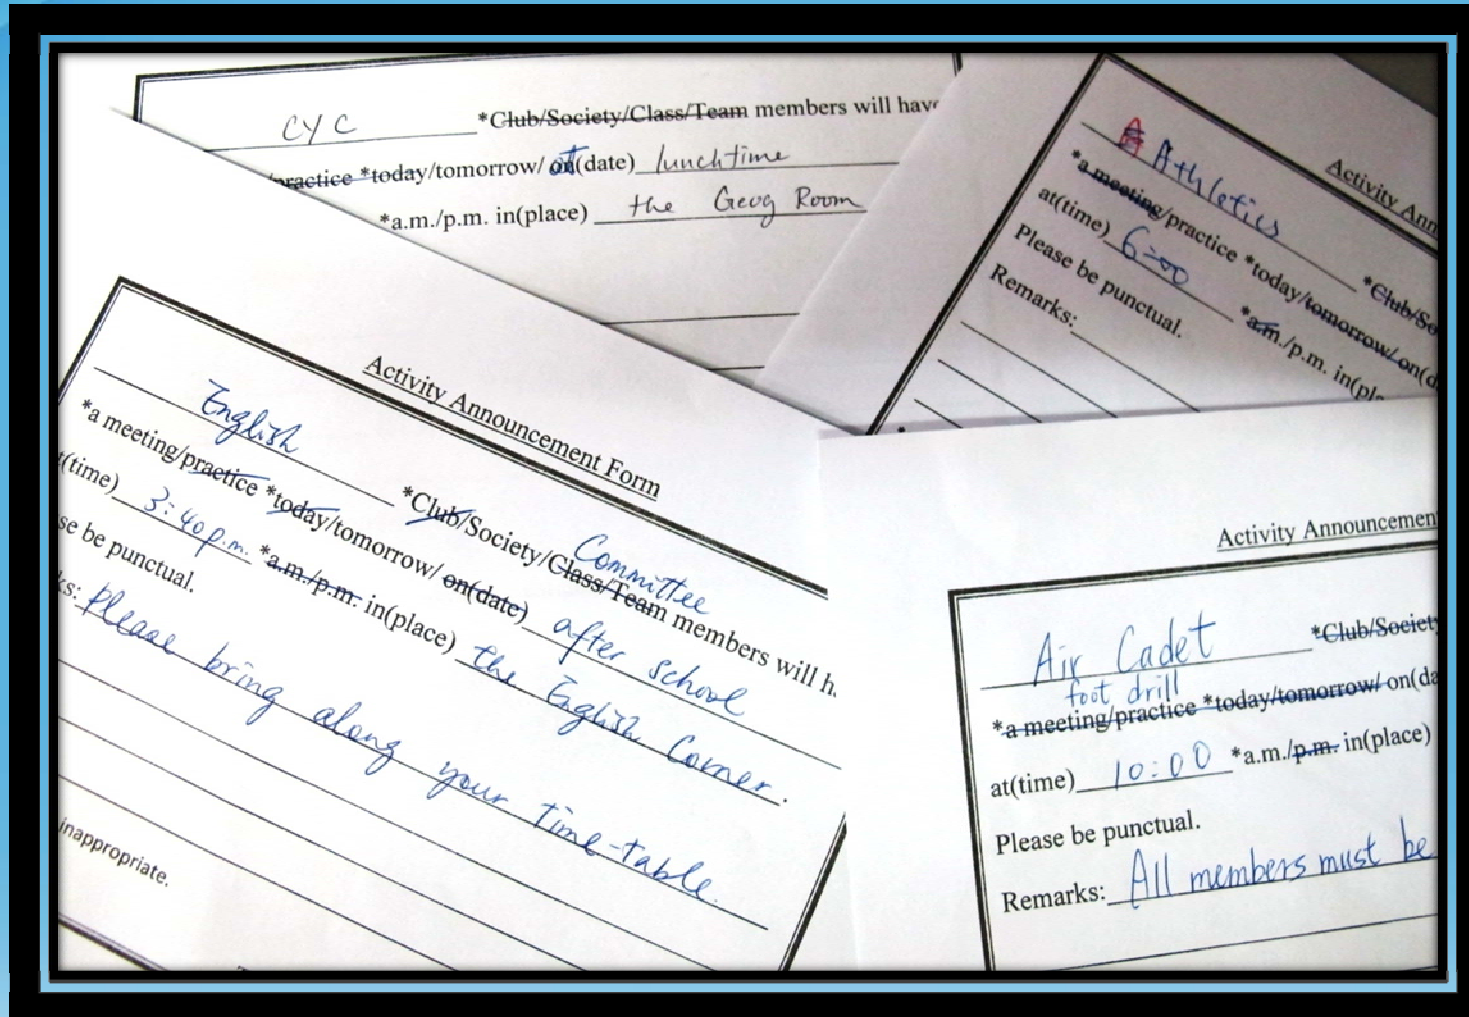 CYC *Club/Society/Class/Team members will have
practice *today/tomorrow/ at(date) lunchtime
*a.m./p.m. in(place) the Geog Room
Activity Ann
Athletics *Club/So
*a meeting/practice *today/tomorrow/ on(d
at(time) 6:00 *a.m./p.m. in(pla
Please be punctual.
Remarks:
Activity Announcement Form
English *Club/Society/Class/Team Committee members will h
*a meeting/practice *today/tomorrow/ on(date) after school
t(time) 3:40 p.m. *a.m./p.m. in(place) the English Corner.
se be punctual.
ks: Please bring along your time-table.
inappropriate.
Activity Announcemen
Air Cadet *Club/Societ
foot drill
*a meeting/practice *today/tomorrow/ on(da
at(time) 10:00 *a.m./p.m. in(place)
Please be punctual.
Remarks: All members must be